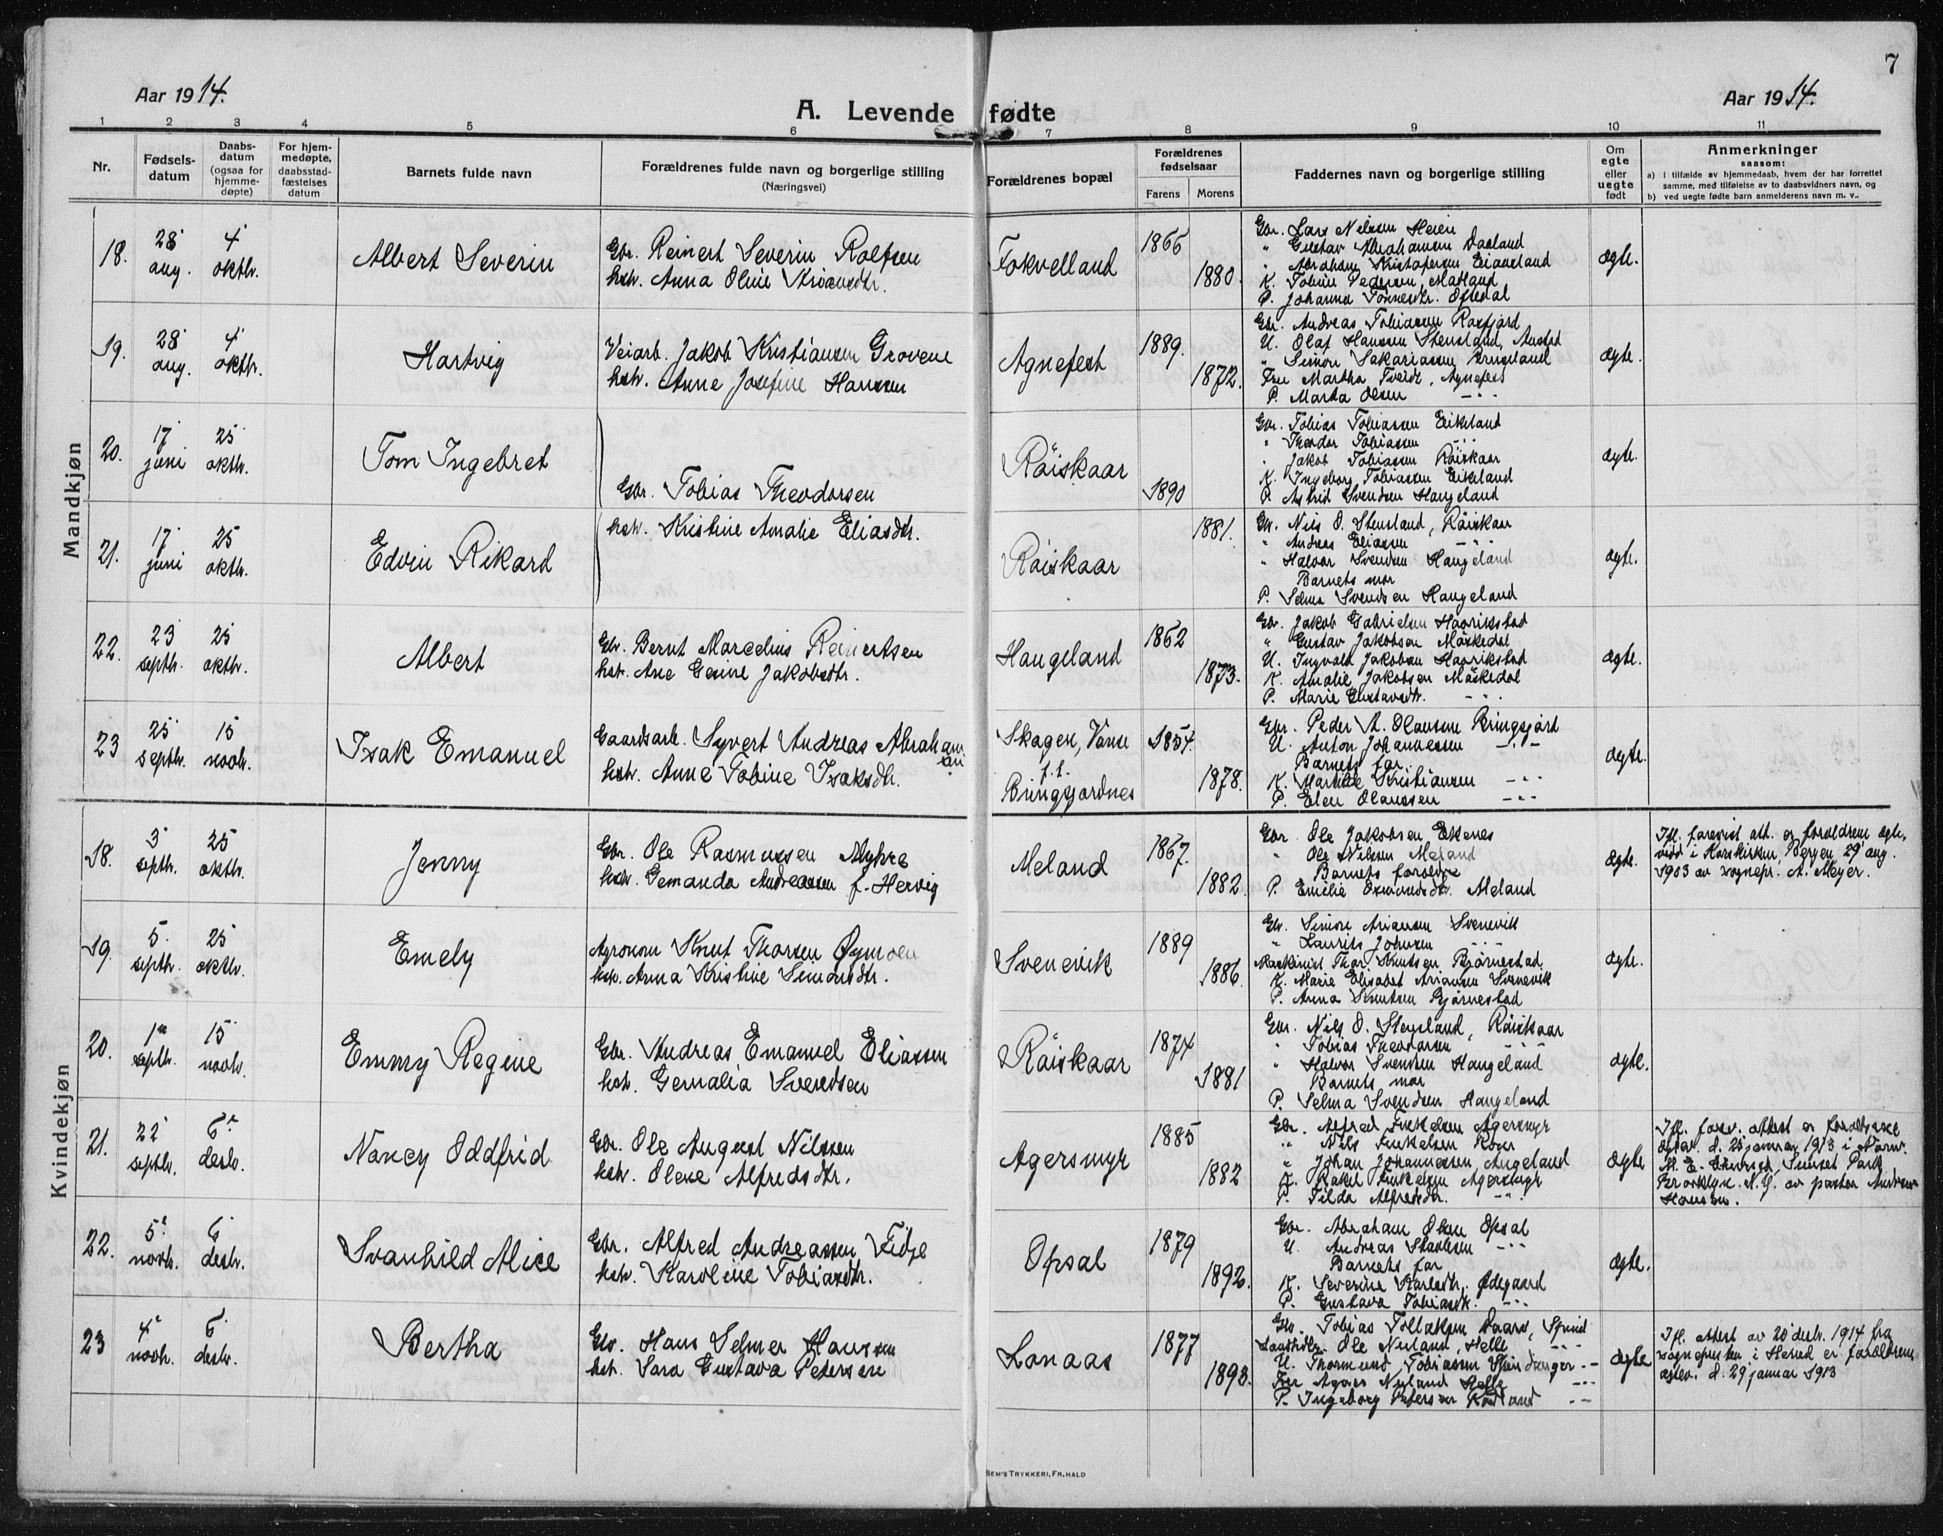 7
Aar 1914.
A. Levende fødte
Aar 1914.
1 2 3 4 5 6 7 8 9 10 11
Nr.
Fødsels-
datum
Daabs-
datum
(ogsaa for
hjemme-
døpte)
For hjem-
medøpte,
daabsstad-
fæstelses
datum
Barnets fulde navn
Forældrenes fulde navn og borgerlige stilling
(Næringsvei)
Forældrenes bopæl
Forældrenes
fødselsaar
Farens Morens
Faddernes navn og borgerlige stilling
Om
egte
eller
uegte
født
Anmerkninger
saasom:
a) I tilfælde av hjemmedaab, hvem der har forrettet
samme, med tilføielse av to daabsvidners navn, og
b) ved uegte fødte barn anmelderens navn m. v..
Mandkjøn
18. 28 aug. 4 oktbr.
Albert Severin
Gbr. Reinert Severin Rolfsen
hstr. Anna Oline
Fokvelland
1866
1880.
Gbr. Lars Nilssen Heien
" Gustav Abrahamsen Daaland
" Abraham Kristofersen Eiaasland
K. Tobine Pedersen, Matland
P. Johanna Tønnesdtr. Oftedal
ægte.
19. 28 aug. 4 oktbr.
Hartvig
Veiarb. Jakob Kristiansen Grovene
hstr. Anne Josefine Hanssen
Agnefest
1889.
1872.
Gbr. Andreas Tobiassen Rosfjord
U. Olaf Hanssen Stensland, Austad
" Simon Sakariassen
Fru Martha Tveide, Agnefest
P. Marta Olsen - " -
ægte.
20. 17 juni 25 oktbr.
Tom Ingebret
Gbr. Tobias Theodorsen
Røiskaar
1890
Gbr. Tobias Tobiassen Eikeland
" Theodor Tobiassen - " -
" Jakob Tobiassen Røiskaar
K. Ingeborg Tobiassen Eikeland
P. Astrid Svendsen Haugeland
ægte.
21. 17 juni 25 oktbr.
Edvin Rikard
hstr. Kristine Amalie Eliasdtr.
Røiskaar
1881.
Gbr. Nils O. Stensland, Røiskaar
" Andreas Eliassen - " -
" Halvor Svendsen Haugeland
Barnets mor
P. Selma Svendsen Haugeland
ægte.
22. 23 septbr. 25 oktbr.
Albert
Gbr. Bernt Marcelius Reinertsen
hstr. Ane Gesine Jakobsdtr.
Haugeland
1862
1873.
Gbr. Jakob Gabrielsen Haarikstad
" Gustav Jakobsen Møskedal
U. Ingvald Jakobsen Haarikstad
K. Amalie Jakobsen Møskedal
P. Marie Gustavsdtr. - " -
ægte.
23 25 septbr. 15 novbr.
Isak Emanuel
Gaardsarb. Syvert Andreas Abraham-
sen
hstr. Anne Tobine Isaksdtr.
Skagen, Vanse
f.t.
Bringsjordnes
1854.
1878.
Gbr. Peder A. Olaussen Bringsjord
U. Anton Johannessen - " -
Barnets far.
K. Martille Kristiansen - " -
P. Elen Olaussen - " -
ægte.
Kvindekjøn
18. 3 septbr. 25 oktbr.
Jenny
Gbr. Ole Rasmussen Myhre
hstr. Gemanda Andreassen f. Hervig
Meland
1867.
1882.
Gbr. Ole Jakobsen Ekenes
" Ole Nilsen Meland
Barnets forældre
P. Emilie Osmundsdtr. Meland
ægte.
Ifl. forevist att. er forældrene ægte-
viod i Korskirken, Bergen, 29 aug.
1903 av sognepr. A. Meyer.
19. 5. septbr. 25 oktbr.
Emely
Agronom Knut Thorsen
hstr. Anna Kristine Simonsdtr.
Svenevik
1889
1886.
Gbr. Simon Ariansen Svenevik
" Laurits Johnsen - " -
Maskinist Thor. Knutsen Bjørnestad
K. Marie Elisabet Ariansen Svenevik
P. Anna Knutsen Bjørnestad
ægte.
20. septbr. 15 novbr.
Emmy Regine
Gbr. Andreas Emanuel Eliassen
hstr. Gemalia Svendsen
Røiskaar
1874
1881
Gbr. Nils O. Stensland, Røiskaar
" Tobias Theodorsen - " -
" Halvor Svendsen Haugeland
Barnets mor
P. Selma Svendsen Haugeland
ægte.
21. 22 septbr. 6 desbr.
Nancy Oddfrid
Gbr. Ole August Nilssen
hstr. Olene Alfredsdtr.
Agersmyr
1885
1882
Gbr. Alfred Eskelsen Agersmyr
" Nils Eskelsen
" Johan Johannessen, Augeland
K. Rakel Eskelsen Agersmyr
P. Tilda Alfredsdtr. - " -
ægte
Ifl. forev. attest er forældrene
ægtev. d. 25 januar 1913 i Norw.
M. E. Church, Sunset Park
Brooklyn. N.Y. av pastor Andrew
Hansen.
22. 5 novbr. 6 desbr.
Svanhild Alice
Gbr. Alfred Andreassen Fidje
hstr. Karoline Tobiasdtr.
Opsal
1879
1892.
Gbr. Abraham Olsen Opsal
U. Andreas - " -
Barnets far
K. Severine Karlsdtr. Ødegaard
P. Gustava Tobiasdtr. - " -
ægte.
23 4 novbr. 6 desbr.
Bertha
Gbr. Hans Selmer Hanssen
hstr. Sara Gustava Petersen
Lonaas
1877
1893.
Gbr. Tobias Tollaksen
Ole Nuland, Helle - " -
U. Thormund Tobiassen
Fru Agnes Nuland Helle - " -
P. Ingeborg Petersen - " -
ægte
Ifl. attest av 20 desbr. 1914 fra
sognepresten i Hered er forældrene
ægtev. d. 29 januar 1913
SEM'S TRYKKERI, FR.HALD